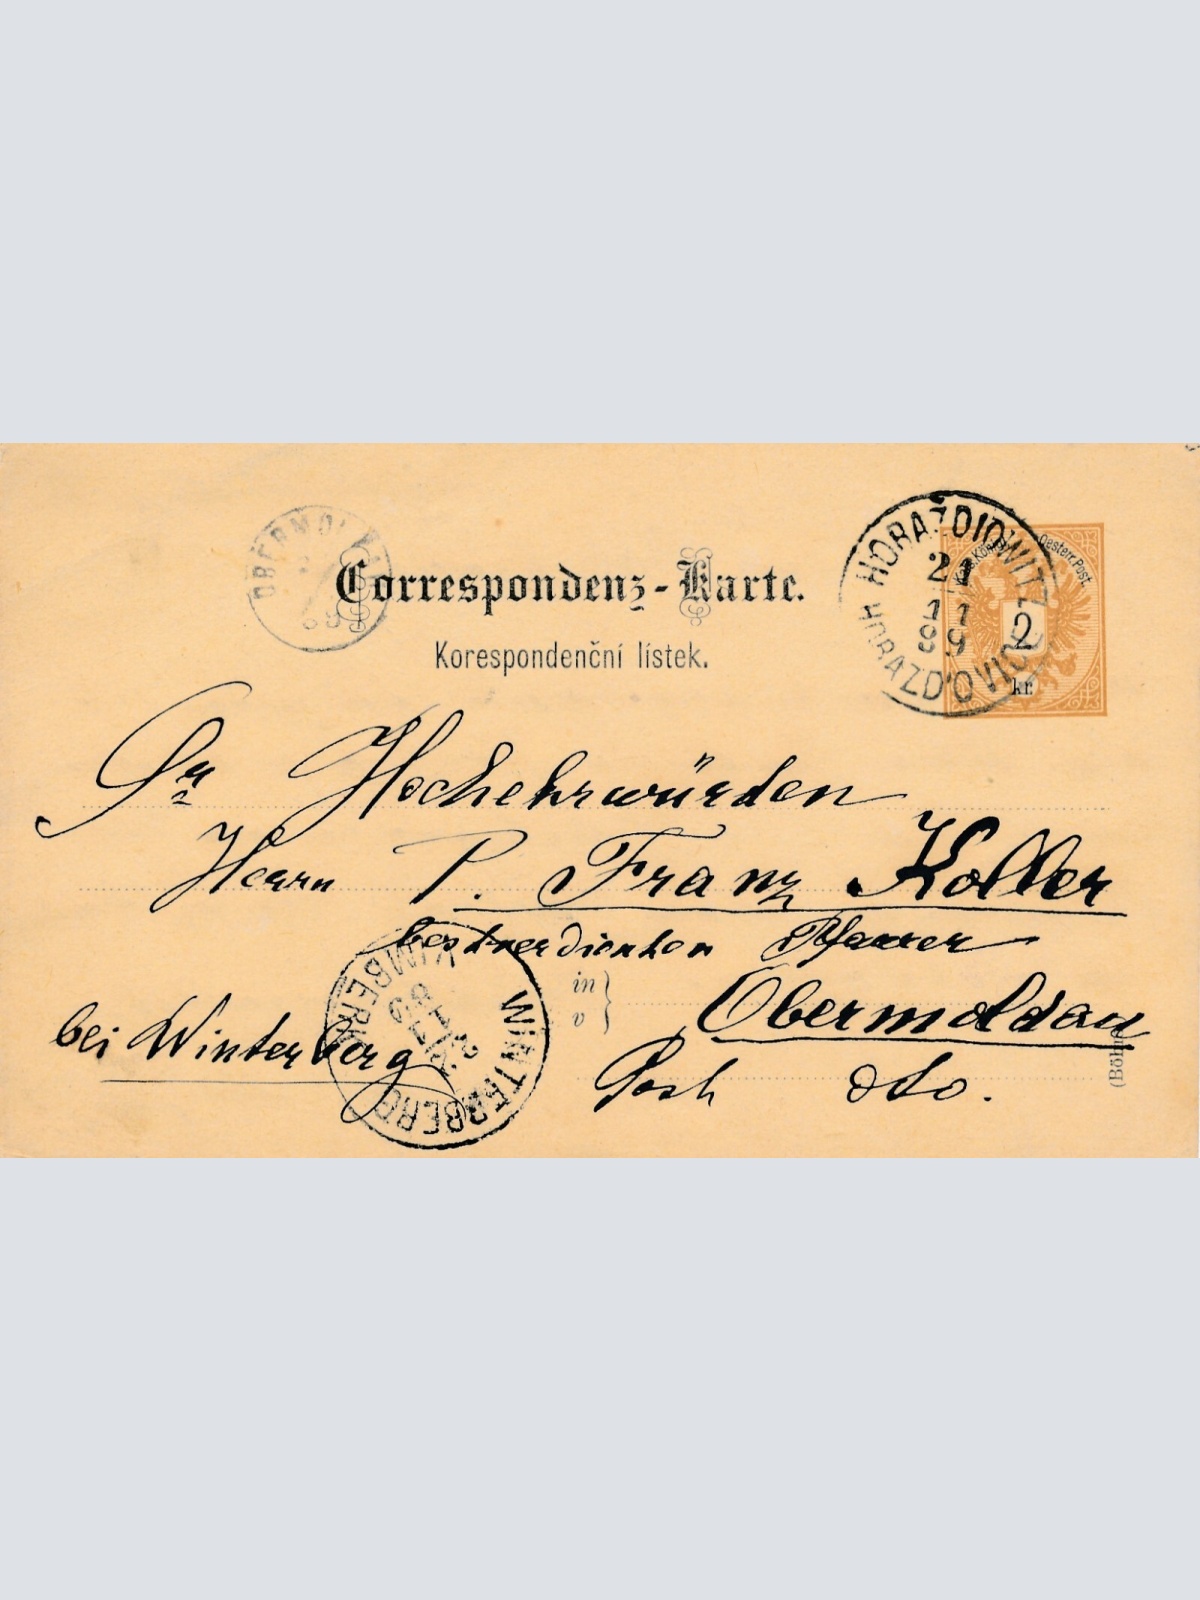 Correspondenz-Karte.
Korespondenční lístek.
HORAŽDIOWITZ
21
11
89
HORAŽĎOVICE
Kais. Königl. Oesterr. Post.
2
kr.
OBERMOLDAU
89
Sr Hochehrwürden
Herrn P. Franz Koller
bestverdienten Pfarrer
in
v
Obermoldau
bei Winterberg
Post dto.
WINTERBERG
22
11
89
VIMBERK
(Böhm.